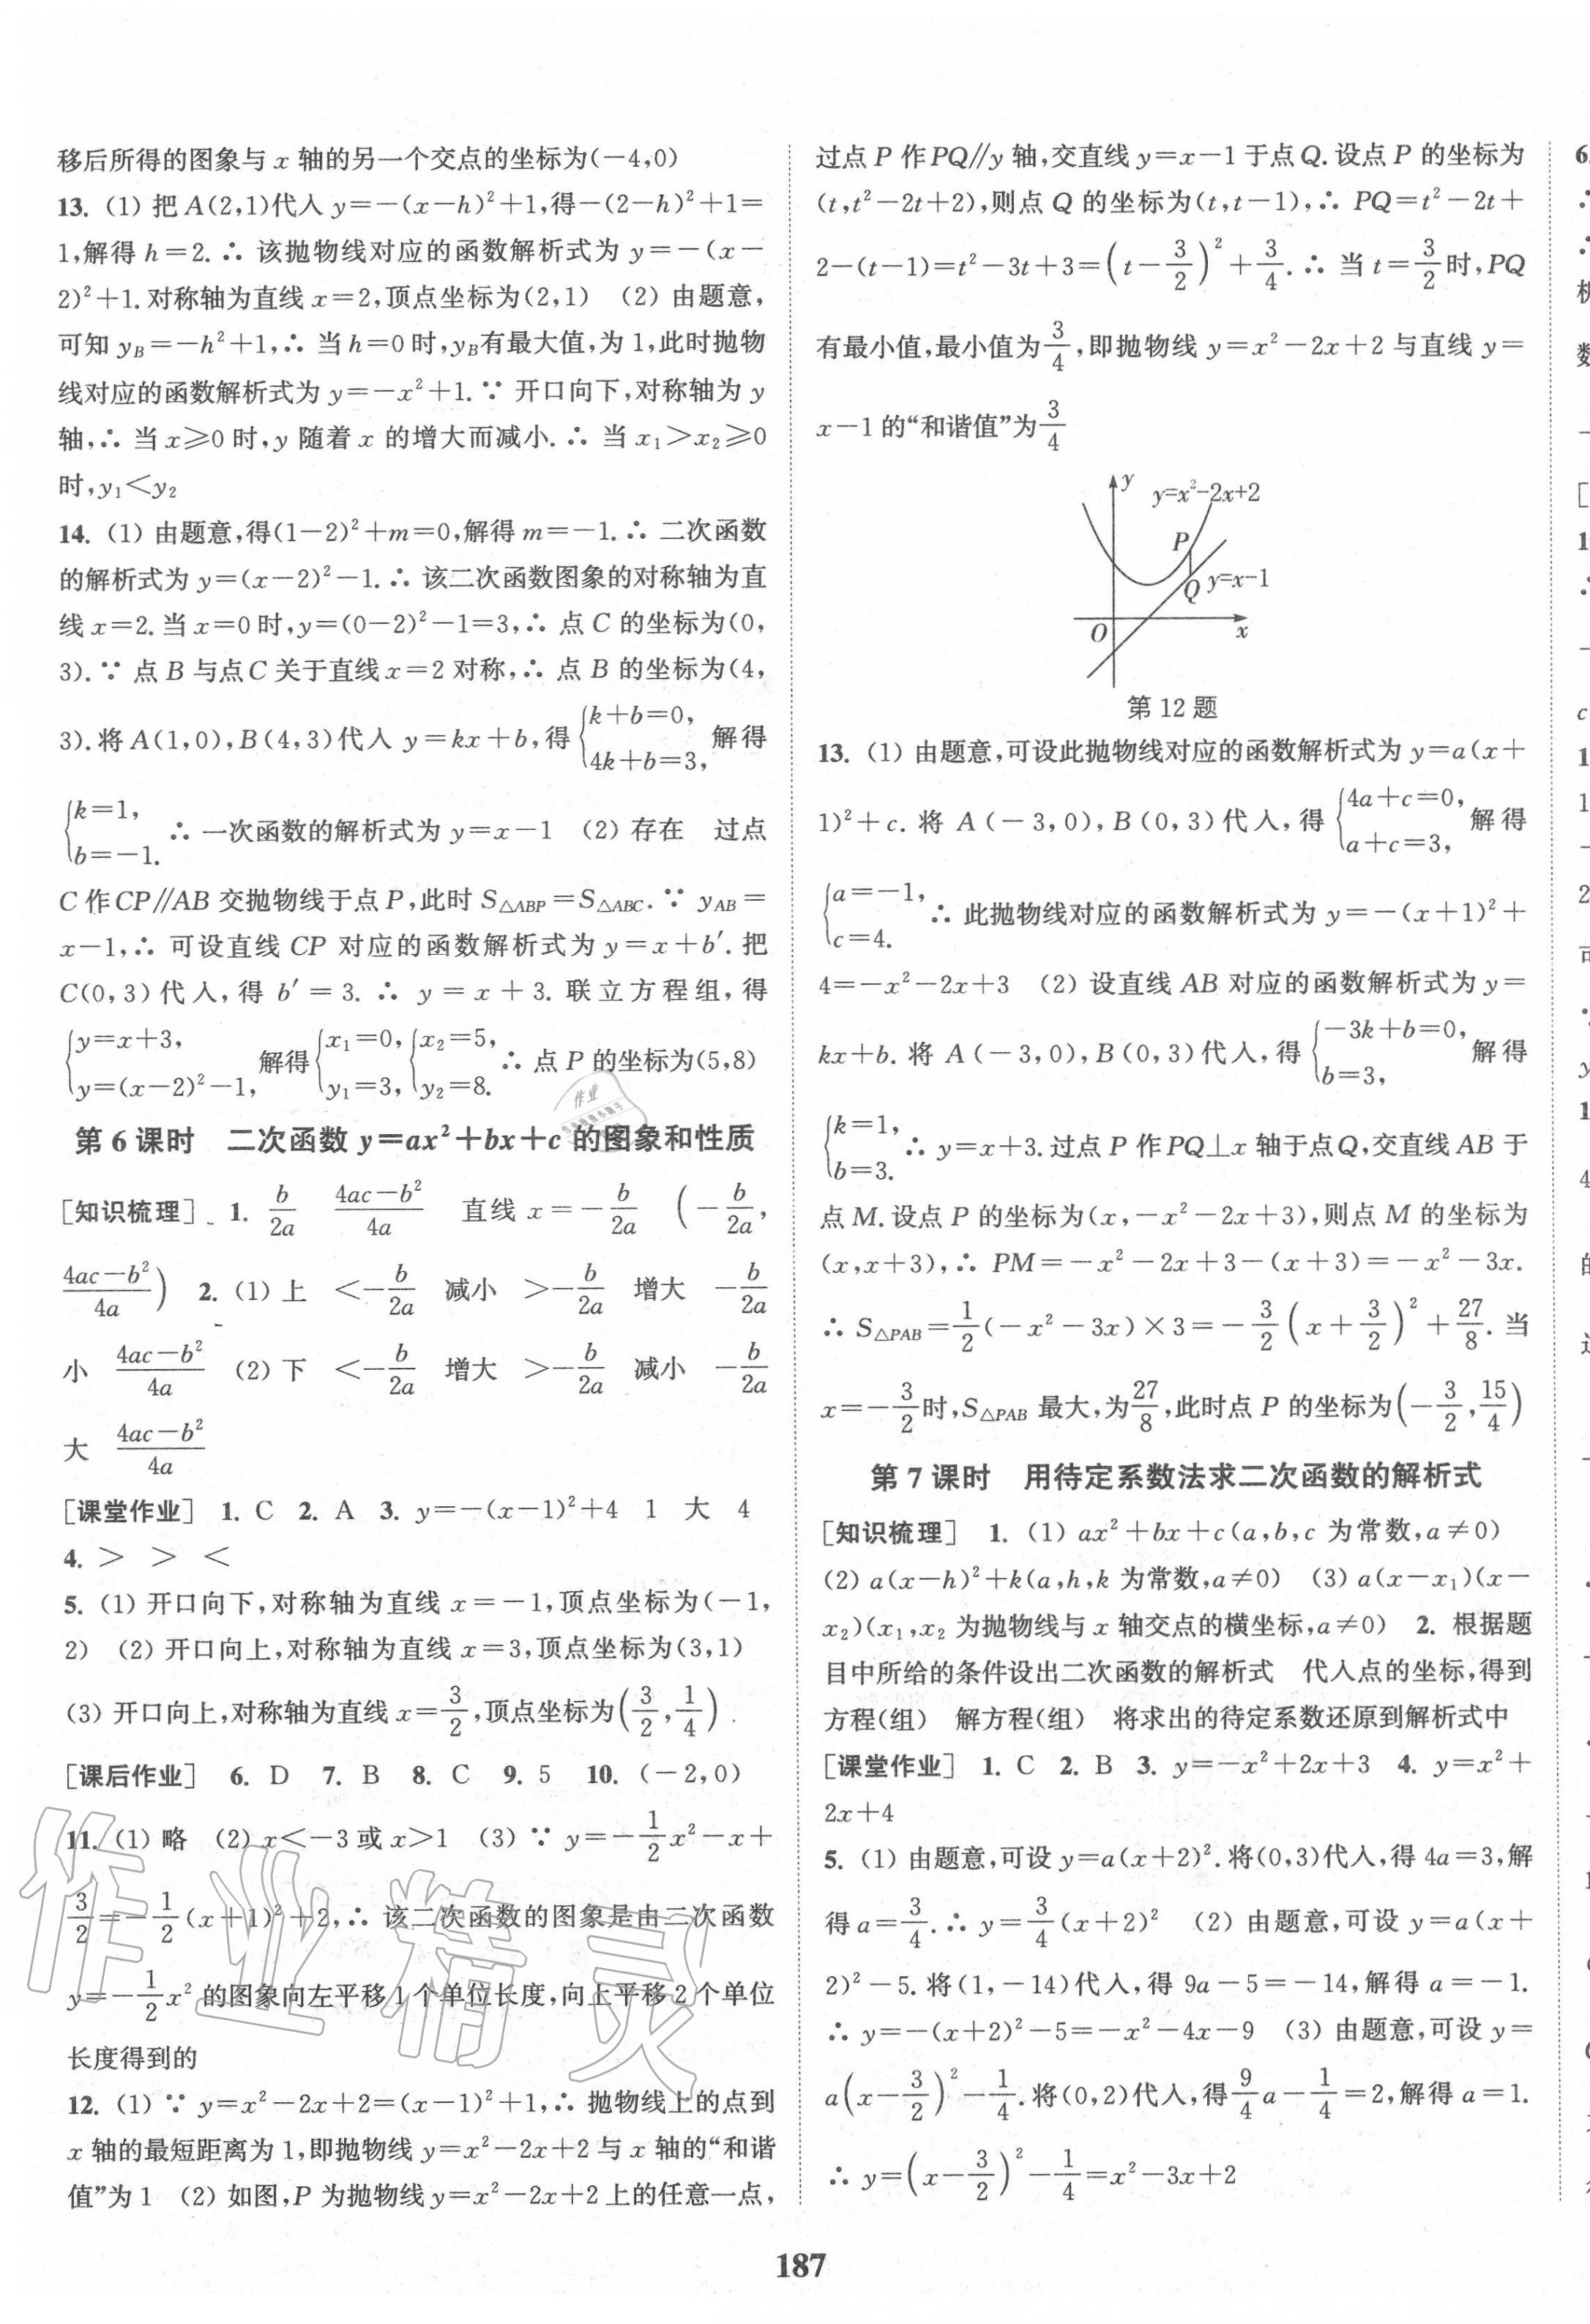 移后所得的图象与 x 轴的另一个交点的坐标为(－4,0)
13. (1) 把 A(2,1)代入 y=－(x－h)²＋1,得－(2－h)²＋1=
1,解得 h=2. ∴ 该抛物线对应的函数解析式为 y=－(x－
2)²＋1. 对称轴为直线 x=2,顶点坐标为(2,1)　(2) 由题意,
可知 y_B=－h²＋1,∴ 当 h=0 时,y_B有最大值,为 1,此时抛物
线对应的函数解析式为 y=－x²＋1. ∵ 开口向下,对称轴为 y
轴,∴ 当 x⩾0 时,y 随着 x 的增大而减小. ∴ 当 x₁＞x₂⩾0
时,y₁＜y₂
14. (1) 由题意,得(1－2)²＋m=0,解得 m=－1. ∴ 二次函数
的解析式为 y=(x－2)²－1. ∴ 该二次函数图象的对称轴为直
线 x=2. 当 x=0 时,y=(0－2)²－1=3,∴ 点 C 的坐标为(0,
3). ∵ 点 B 与点 C 关于直线 x=2 对称,∴ 点 B 的坐标为(4,
3). 将 A(1,0),B(4,3)代入 y=kx＋b,得 {k＋b=0, 4k＋b=3, 解得
{k=1, b=－1. ∴ 一次函数的解析式为 y=x－1　(2) 存在　过点
C 作 CP∥AB 交抛物线于点 P,此时 S△ABP=S△ABC. ∵ y_AB=
x－1,∴ 可设直线 CP 对应的函数解析式为 y=x＋b′. 把
C(0,3)代入,得 b′=3. ∴ y=x＋3. 联立方程组,得
{y=x＋3, y=(x－2)²－1, 解得 {x₁=0, y₁=3, {x₂=5, y₂=8. ∴ 点 P 的坐标为(5,8)
第 6 课时　二次函数 y=ax²＋bx＋c 的图象和性质
[知识梳理] 1. b/2a　(4ac－b²)/4a　直线 x=－b/2a　(－b/2a,
(4ac－b²)/4a)　2. (1) 上　＜－b/2a　减小　＞－b/2a　增大　－b/2a
小　(4ac－b²)/4a　(2) 下　＜－b/2a　增大　＞－b/2a　减小　－b/2a
大　(4ac－b²)/4a
[课堂作业] 1. C 2. A 3. y=－(x－1)²＋4　1　大　4
4. ＞　＞　＜
5. (1) 开口向下,对称轴为直线 x=－1,顶点坐标为(－1,
2)　(2) 开口向上,对称轴为直线 x=3,顶点坐标为(3,1)
(3) 开口向上,对称轴为直线 x=3/2,顶点坐标为(3/2,1/4)
[课后作业] 6. D 7. B 8. C 9. 5 10. (－2,0)
11. (1) 略　(2) x＜－3 或 x＞1　(3) ∵ y=－1/2x²－x＋
3/2=－1/2(x＋1)²＋2,∴ 该二次函数的图象是由二次函数
y=－1/2x² 的图象向左平移 1 个单位长度,向上平移 2 个单位
长度得到的
12. (1) ∵ y=x²－2x＋2=(x－1)²＋1,∴ 抛物线上的点到
x 轴的最短距离为 1,即抛物线 y=x²－2x＋2 与 x 轴的“和谐
值”为 1　(2) 如图,P 为抛物线 y=x²－2x＋2 上的任意一点,
过点 P 作 PQ∥y 轴,交直线 y=x－1 于点 Q. 设点 P 的坐标为
(t,t²－2t＋2),则点 Q 的坐标为(t,t－1),∴ PQ=t²－2t＋
2－(t－1)=t²－3t＋3=(t－3/2)²＋3/4. ∴ 当 t=3/2 时,PQ
有最小值,最小值为 3/4,即抛物线 y=x²－2x＋2 与直线 y=
x－1 的“和谐值”为 3/4
y
y=x²－2x+2
P
Q
y=x－1
O
x
第 12 题
13. (1) 由题意,可设此抛物线对应的函数解析式为 y=a(x＋
1)²＋c. 将 A(－3,0),B(0,3)代入,得 {4a＋c=0, a＋c=3, 解得
{a=－1, c=4. ∴ 此抛物线对应的函数解析式为 y=－(x＋1)²＋
4=－x²－2x＋3　(2) 设直线 AB 对应的函数解析式为 y=
kx＋b. 将 A(－3,0),B(0,3)代入,得 {－3k＋b=0, b=3, 解得
{k=1, b=3. ∴ y=x＋3. 过点 P 作 PQ⊥x 轴于点 Q,交直线 AB 于
点 M. 设点 P 的坐标为(x,－x²－2x＋3),则点 M 的坐标为
(x,x＋3),∴ PM=－x²－2x＋3－(x＋3)=－x²－3x.
∴ S△PAB=1/2(－x²－3x)×3=－3/2(x＋3/2)²＋27/8. 当
x=－3/2 时,S△PAB 最大,为 27/8,此时点 P 的坐标为(－3/2,15/4)
第 7 课时　用待定系数法求二次函数的解析式
[知识梳理] 1. (1) ax²＋bx＋c(a,b,c 为常数,a≠0)
(2) a(x－h)²＋k(a,h,k 为常数,a≠0)　(3) a(x－x₁)(x－
x₂)(x₁,x₂ 为抛物线与 x 轴交点的横坐标,a≠0)　2. 根据题
目中所给的条件设出二次函数的解析式　代入点的坐标,得到
方程(组)　解方程(组)　将求出的待定系数还原到解析式中
[课堂作业] 1. C 2. B 3. y=－x²＋2x＋3 4. y=x²＋
2x＋4
5. (1) 由题意,可设 y=a(x＋2)². 将(0,3)代入,得 4a=3,解
得 a=3/4. ∴ y=3/4(x＋2)²　(2) 由题意,可设 y=a(x＋
2)²－5. 将(1,－14)代入,得 9a－5=－14,解得 a=－1.
∴ y=－(x＋2)²－5=－x²－4x－9　(3) 由题意,可设 y=
a(x－3/2)²－1/4. 将(0,2)代入,得 9/4a－1/4=2,解得 a=1.
∴ y=(x－3/2)²－1/4=x²－3x＋2
187
作业精灵